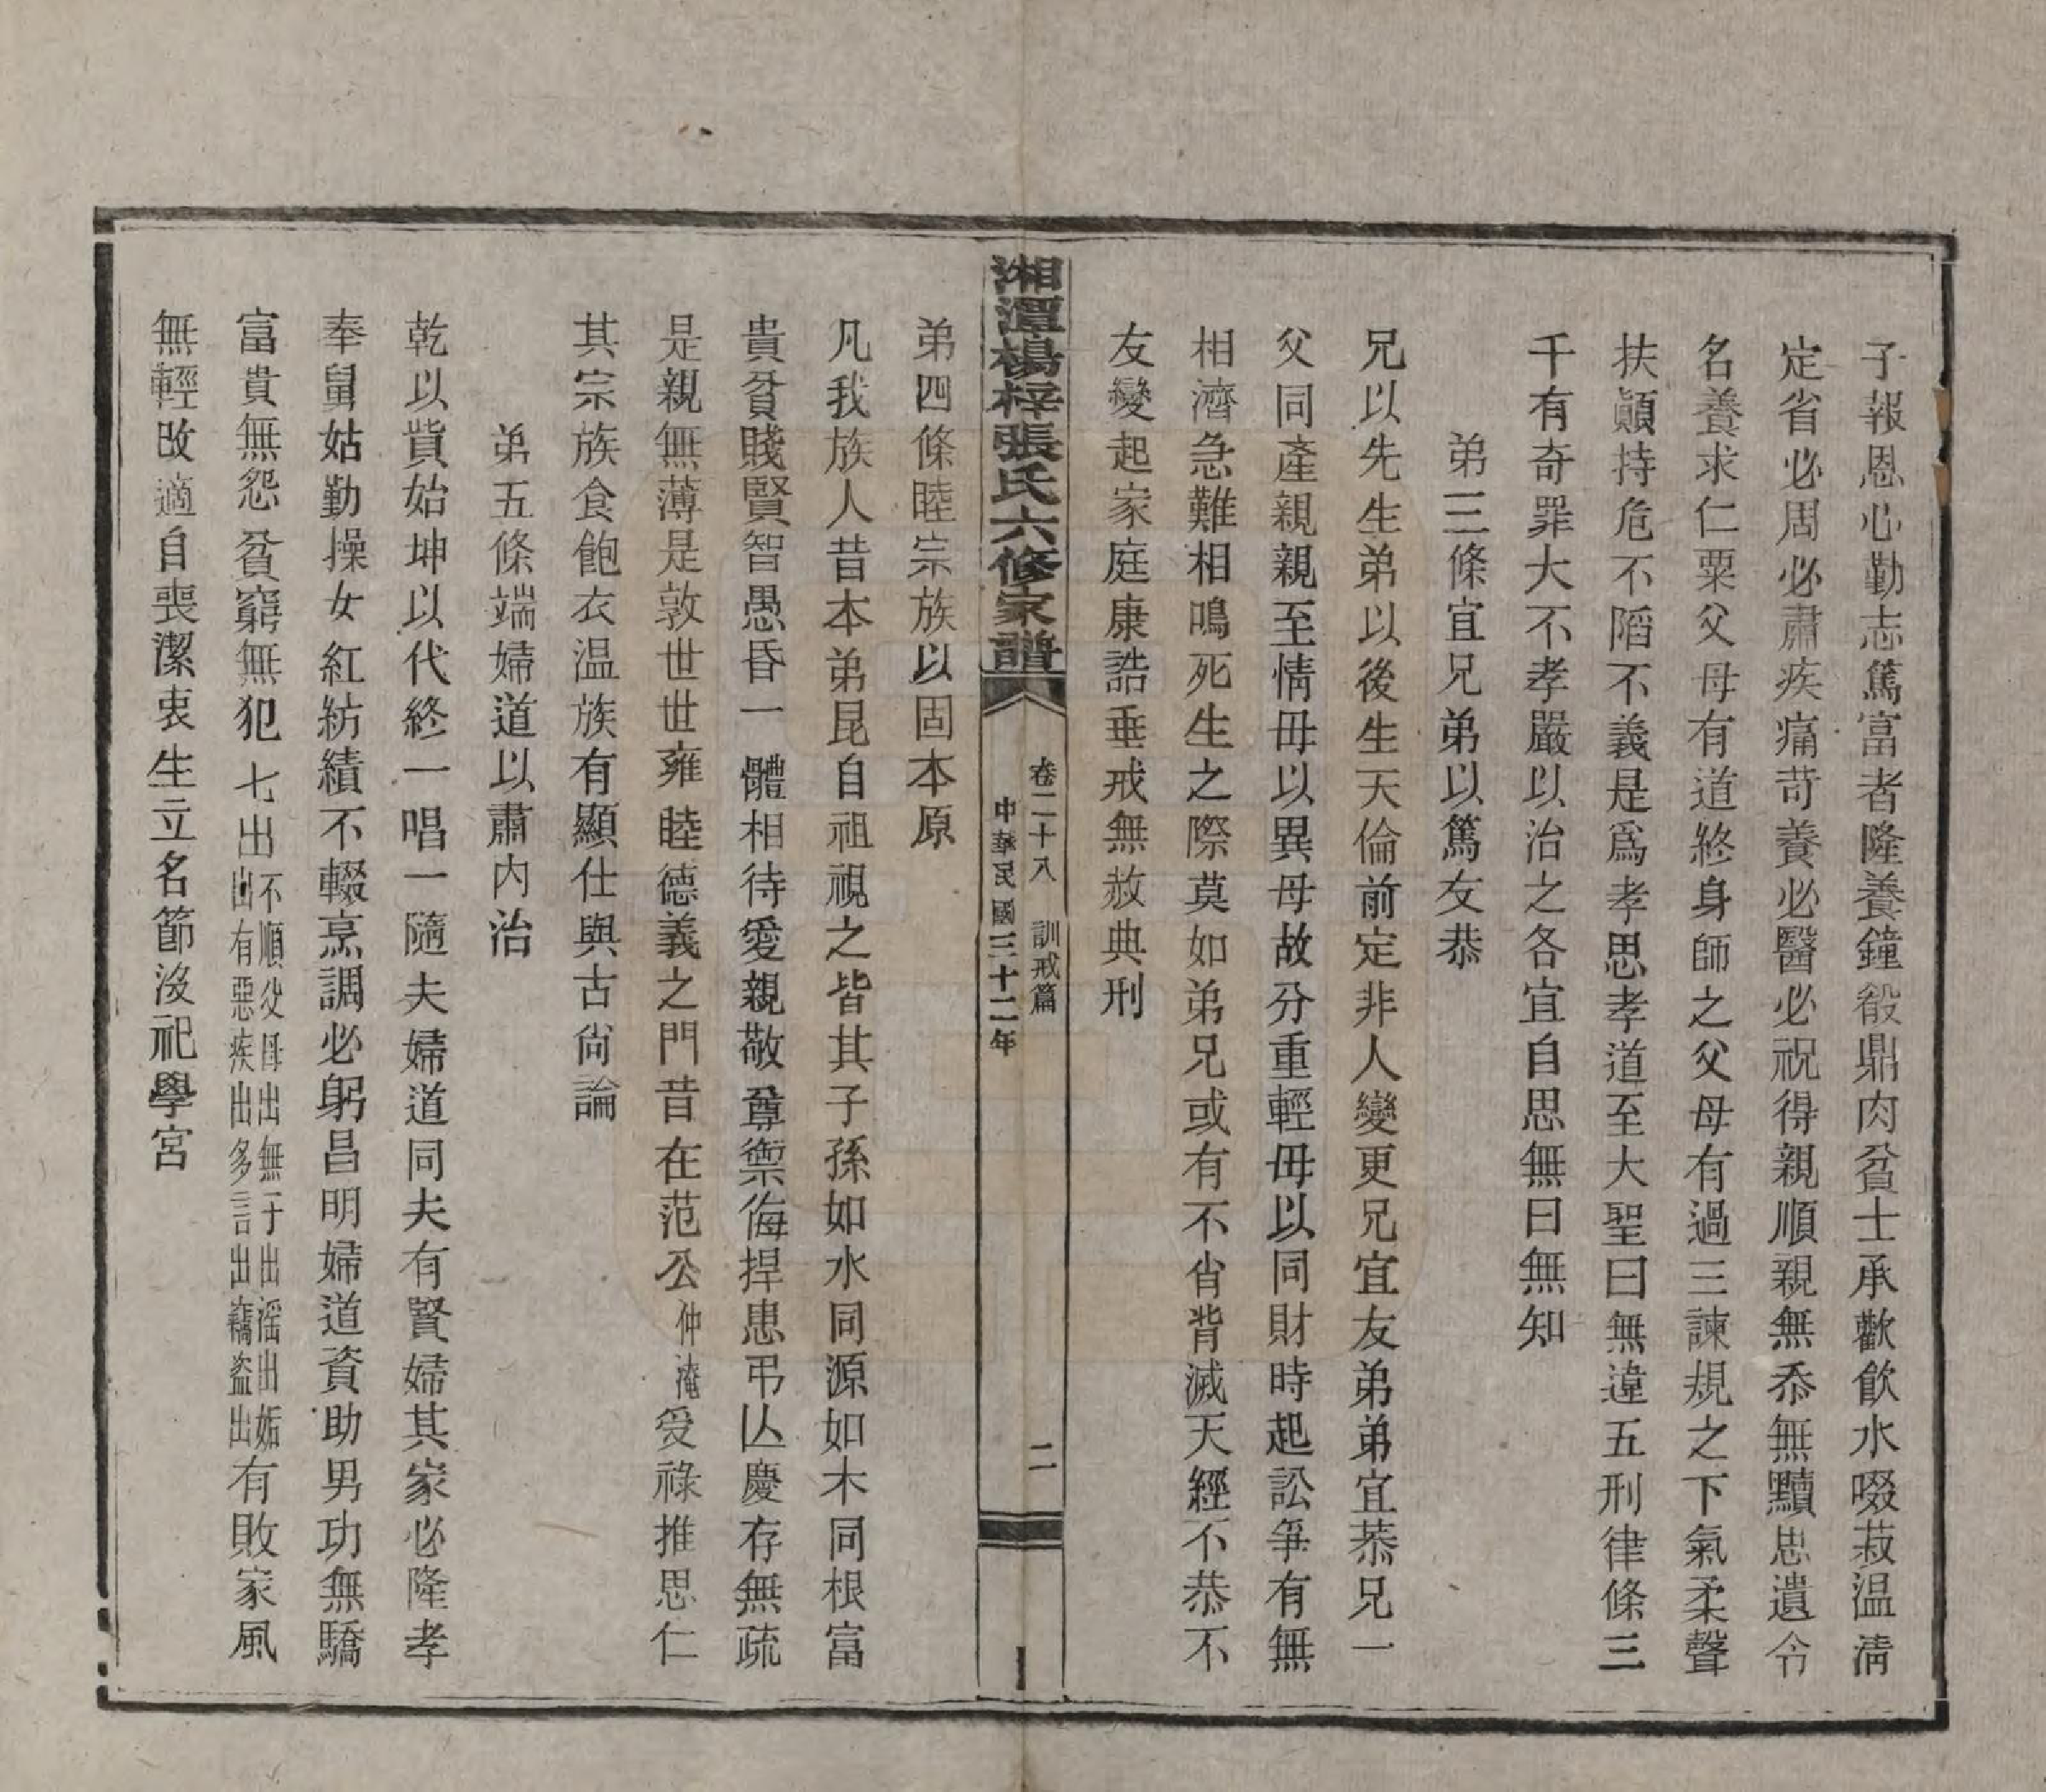 子報恩心勤志篤富者隆養鐘殽鼎肉貧士承歡飲水啜菽温凊
定省必周必肅疾痛苛養必醫必祝得親順親無忝無黷思遺令
名養求仁粟父母有道終身師之父母有過三諫規之下氣柔聲
扶顚持危不陷不義是爲孝思孝道至大聖曰無違五刑律條三
千有奇罪大不孝嚴以治之各宜自思無曰無知
弟三條宜兄弟以篤友恭
兄以先生弟以後生天倫前定非人變更兄宜友弟弟宜恭兄一
父同產親親至情毋以異母故分重輕毋以同財時起訟爭有無
相濟急難相鳴死生之際莫如弟兄或有不肖背滅天經不恭不
友變起家庭康誥垂戒無赦典刑
湘潭楊梓張氏六修家譜
卷二十八 訓戒篇 二
中華民國三十二年
弟四條睦宗族以固本原
凡我族人昔本弟昆自祖視之皆其子孫如水同源如木同根富
貴貧賤賢智愚昏一體相待愛親敬尊禦侮捍患弔亾慶存無疏
是親無薄是敦世世雍睦德義之門昔在范公仲淹受祿推思仁
其宗族食飽衣温族有顯仕與古尙論
弟五條端婦道以肅内治
乾以貲始坤以代終一唱一隨夫婦道同夫有賢婦其家必隆孝
奉舅姑勤操女紅紡績不輟烹調必躬昌明婦道資助男功無驕
富貴無怨貧窮無犯七出不順父母出無子出淫出妬出有惡疾出多言出竊盜出有敗家風
無輕改適自喪潔衷生立名節沒祀學宮